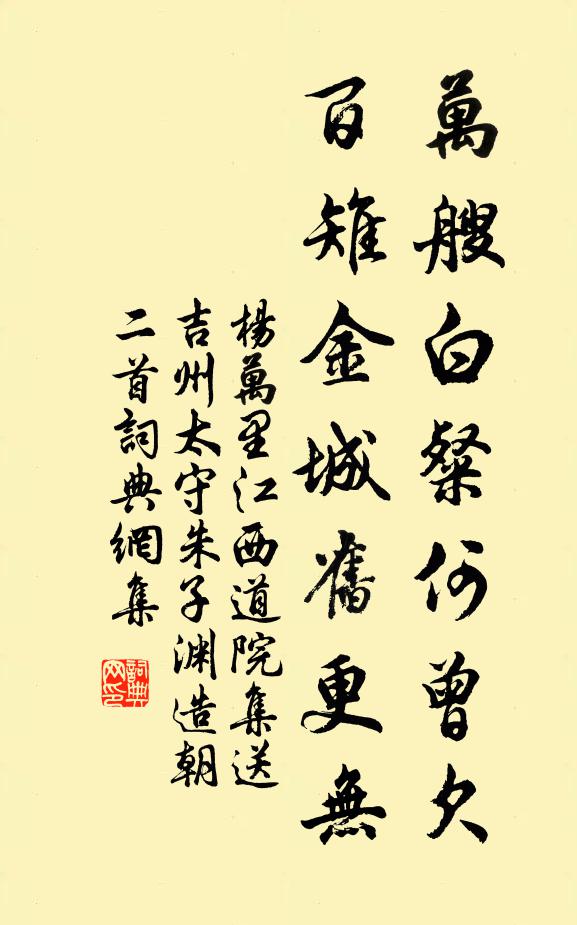 萬艘白粲何曾欠
百雉金城舊更無
楊萬里江西道院集送
吉州太守朱子渊造朝
二首詞典網集
詞典网印